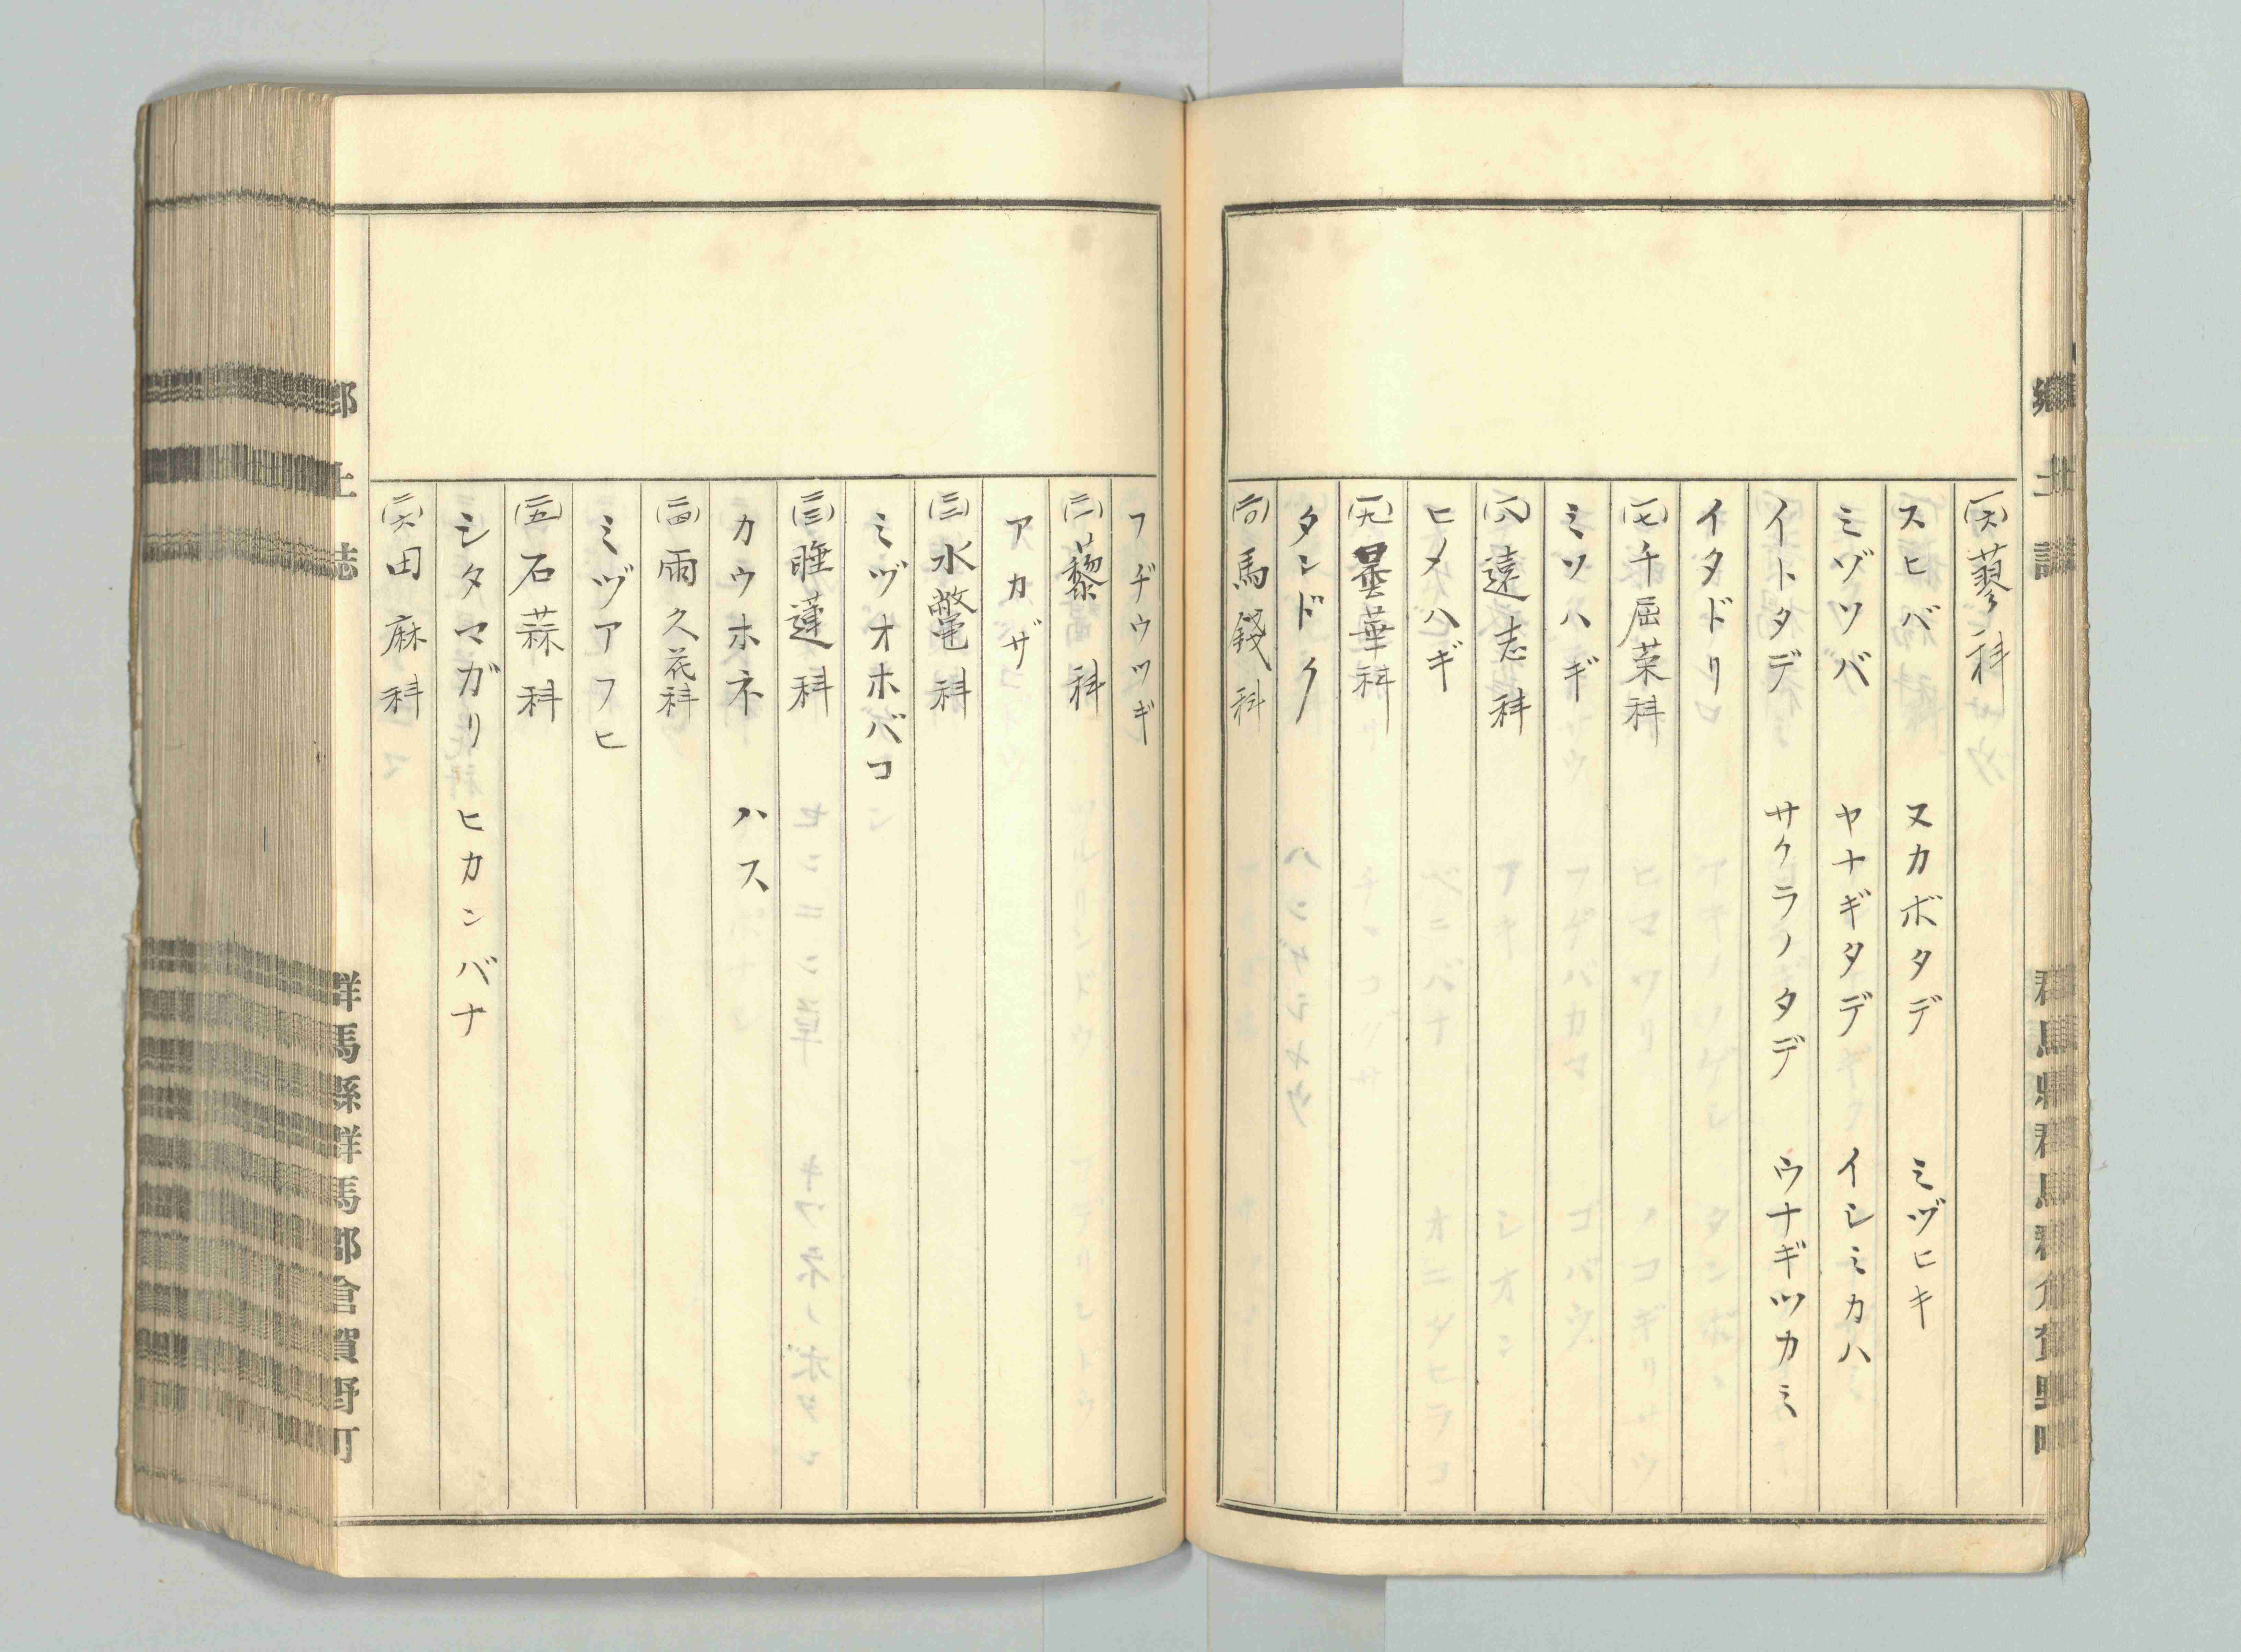 郷土誌
群馬縣群馬郡倉賀野町
(一六)蓼科
スヒバ　ヌカボタデ　ミヅヒキ
ミゾソバ　ヤナギタデ　イシミカハ
イトタデ　サクラノタデ　ウナギツカミ
イタドリ
(一七)千屈菜科
ミソハギ
(一八)遠志科
ヒメハギ
(一九)曇華科
タンドク
(二〇)馬錢科
フヂウツギ
(二一)藜科
アカザ
(二二)水鼈科
ミヅオホバコ
(二三)睡蓮科
カウホネ　ハス
(二四)雨久花科
ミヅアフヒ
(二五)石蒜科
シタマガリ　ヒカンバナ
(二六)田麻科
郷土誌
群馬縣群馬郡倉賀野町